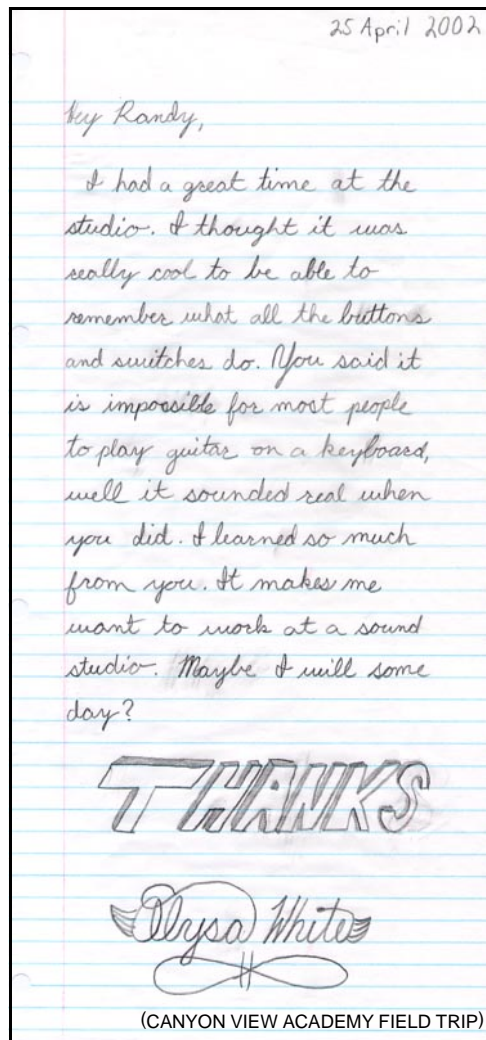 25 April 2002
Hey Randy,
I had a great time at the
studio. I thought it was
really cool to be able to
remember what all the buttons
and switches do. You said it
is impossible for most people
to play guitar on a keyboard,
well it sounded real when
you did. I learned so much
from you. It makes me
want to work at a sound
studio. Maybe I will some
day?
THANKS
Alysa White
(CANYON VIEW ACADEMY FIELD TRIP)